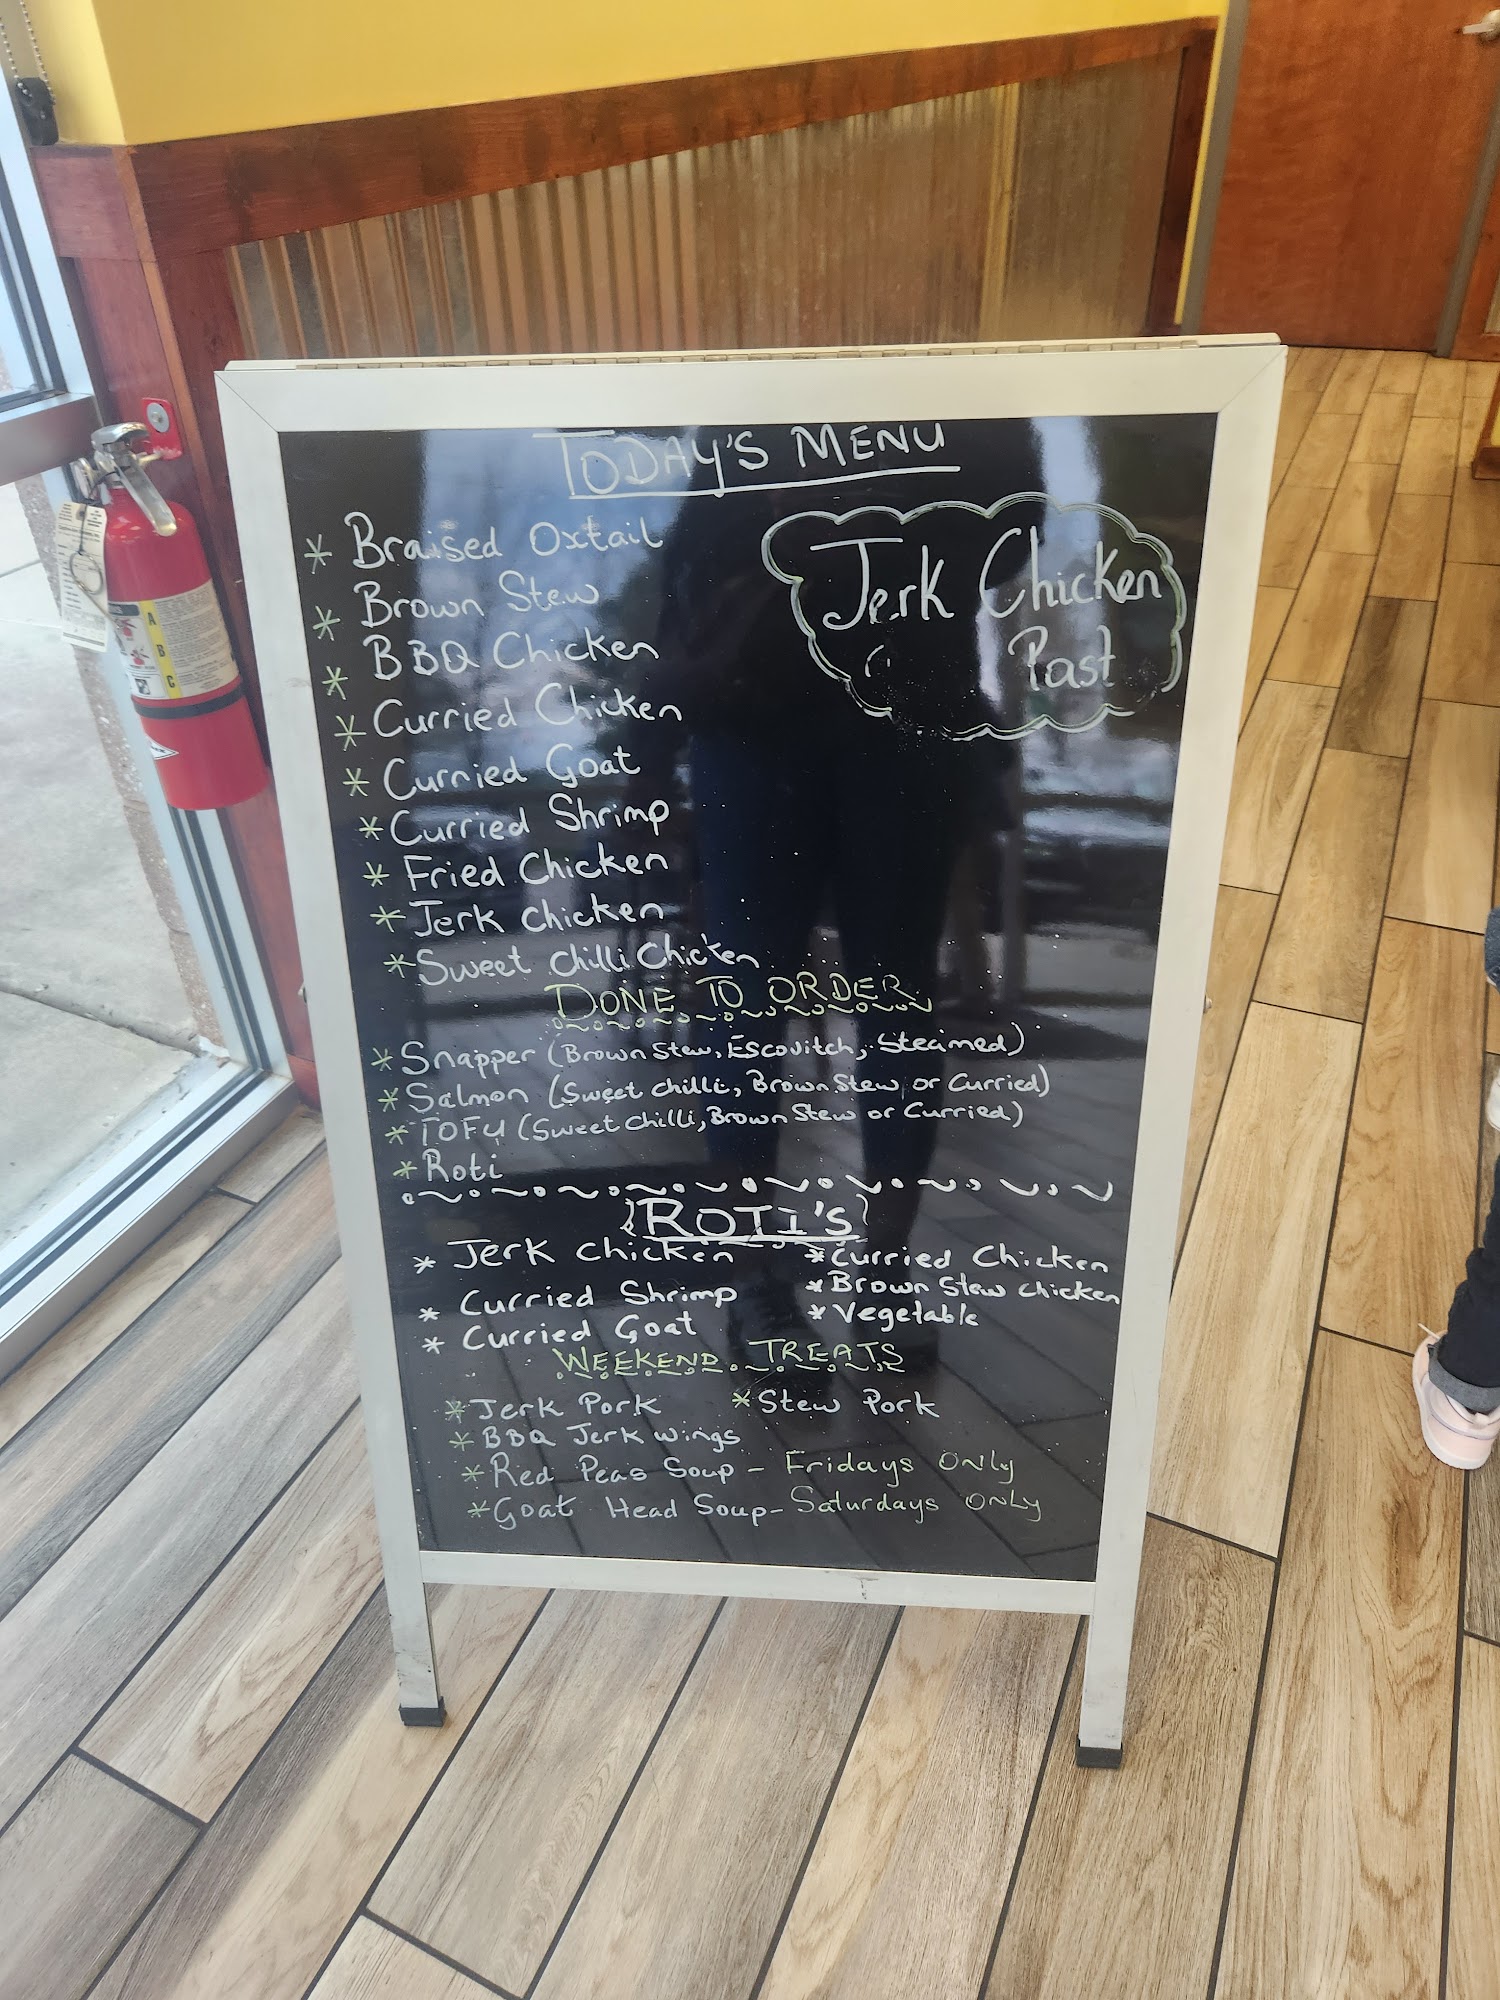 TODAY'S MENU
* Braised Oxtail
* Brown Stew
* BBQ Chicken
* Curried Chicken
* Curried Goat
* Curried Shrimp
* Fried Chicken
* Jerk Chicken
* Sweet Chilli Chicken
Jerk Chicken
Past
DONE TO ORDER
* Snapper (Brown Stew, Escovitch, Steamed)
* Salmon (Sweet chilli, Brown Stew or Curried)
* TOFU (Sweet Chilli, Brown Stew or Curried)
* Roti
ROTI'S
* Jerk Chicken
* Curried Shrimp
* Curried Goat
* Curried Chicken
* Brown Stew Chicken
* Vegetable
WEEKEND TREATS
* Jerk Pork * Stew Pork
* BBQ Jerk Wings
* Red Peas Soup - Fridays ONLY
* Goat Head Soup - Saturdays ONLY
A
B
C